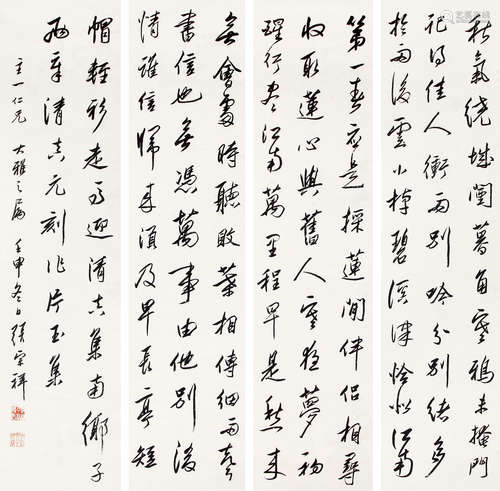 秋氣繞城闉暮角寒鴉未掩門
記得佳人衝雨別吟分別緒多
於雨後雲小棹碧溪津恰似江南
第一春應是採蓮閒伴侶相尋
收取蓮心與舊人寒夜夢初
醒行盡江南萬里程早是愁來
無會處時聽敗葉相傳細雨聲
書信也無憑萬事由他別後
情誰信歸來須及早長亭短
帽輕衫走馬迎清真集南鄉子
兩章清真元刻作片玉集
主一仁兄大雅之屬壬申冬日張宗祥